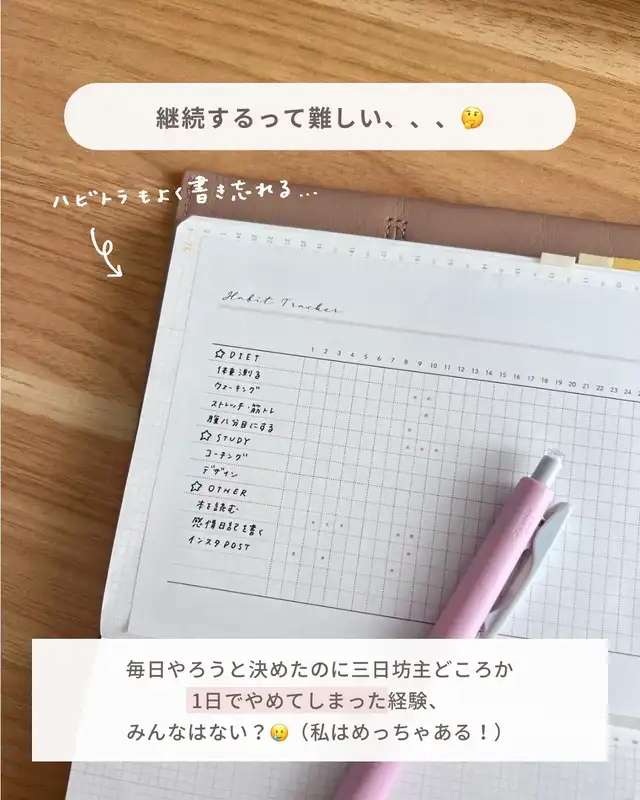 継続するって難しい、、、🤔
ハビトラもよく書き忘れる...
Habit Tracker
1 2 3 4 5 6 7 8 9 10 11 12 13 14 15 16 17 18 19 20 21 22 23 24
☆ DIET
体重測る
ウォーキング
ストレッチ・筋トレ
腹八分目にする
☆ STUDY
コーチング
デザイン
☆ OTHER
本を読む
感情日記を書く
インスタPOST
毎日やろうと決めたのに三日坊主どころか
1日でやめてしまった経験、
みんなはない？🥲（私はめっちゃある！）